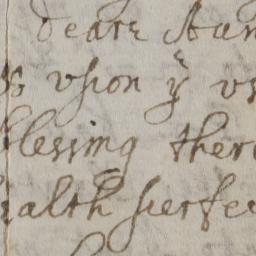 deare Aun
vpon yͤ
blesing ther
ealth perfe